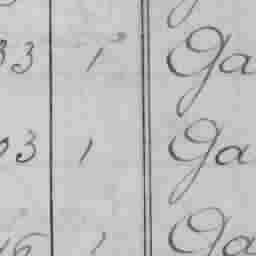 33 1 Ga
03 1 Ga
46 1 Ga